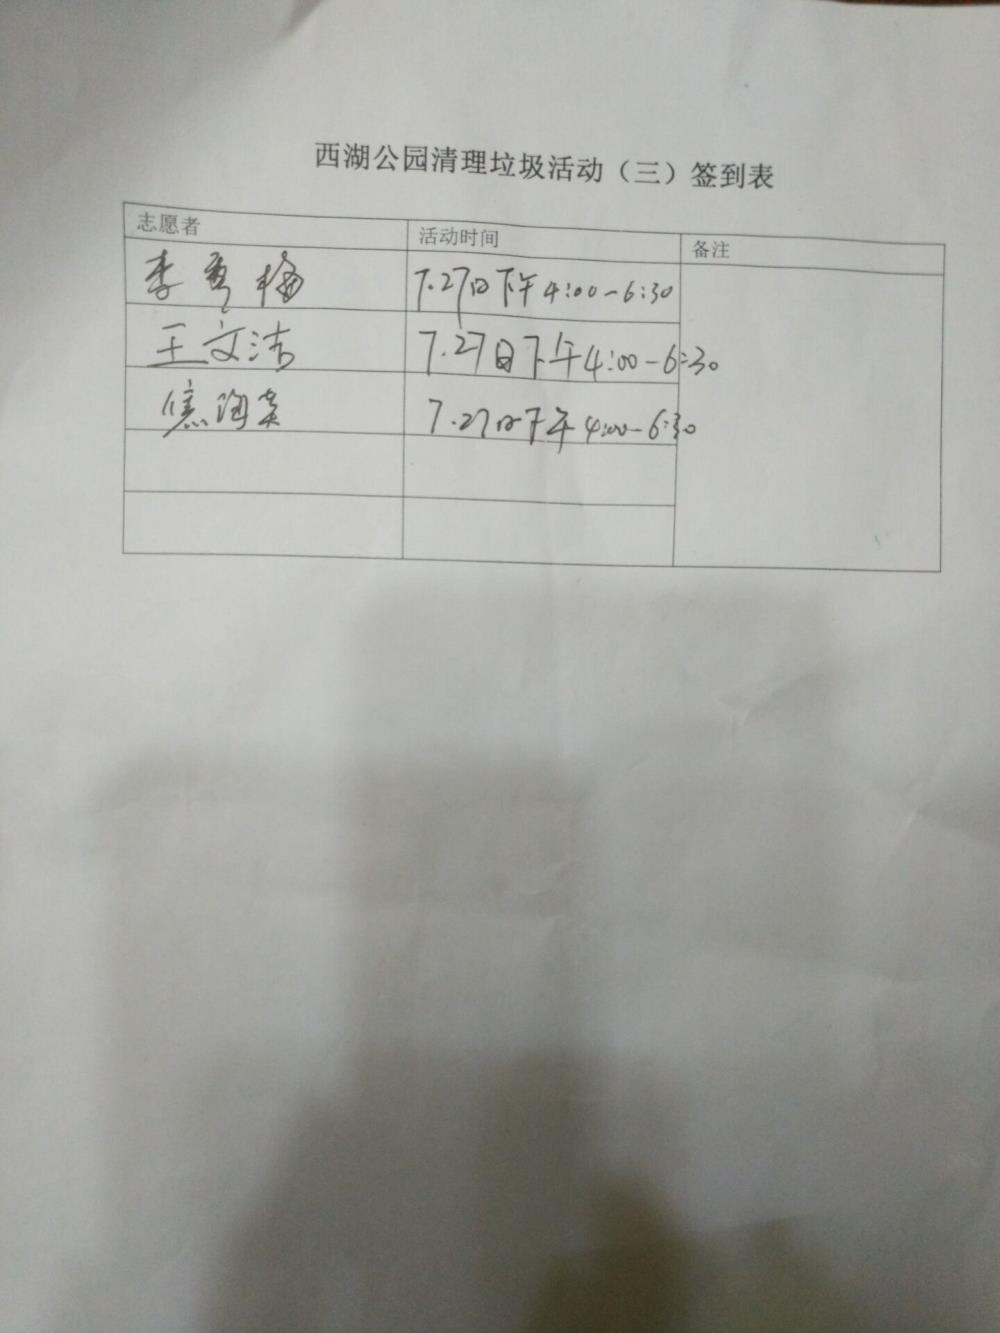 西湖公园清理垃圾活动（三）签到表
志愿者 活动时间 备注
李秀梅 7.27日下午4:00-6:30
王文洁 7.27日下午4:00-6:30
焦海英 7.27日下午4:00-6:30